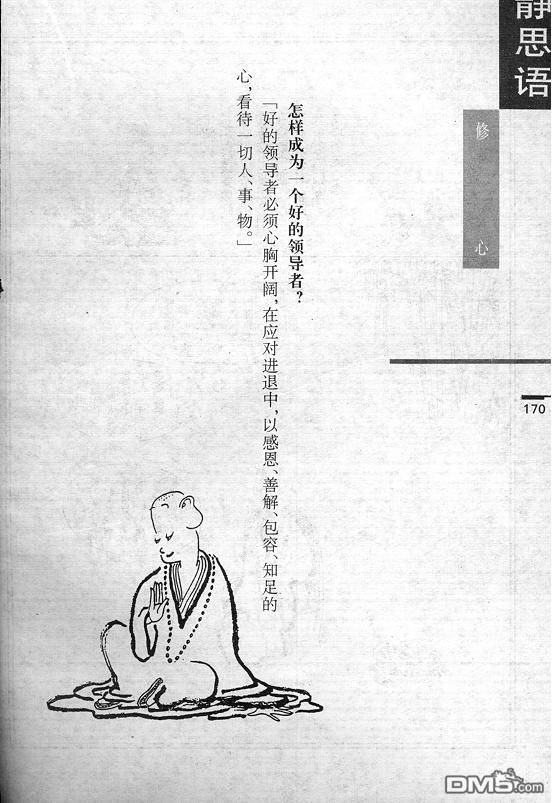 静思语
修心
170
怎样成为一个好的领导者?
「好的领导者必须心胸开阔,在应对进退中,以感恩、善解、包容、知足的
心,看待一切人、事、物。」
DM5.com